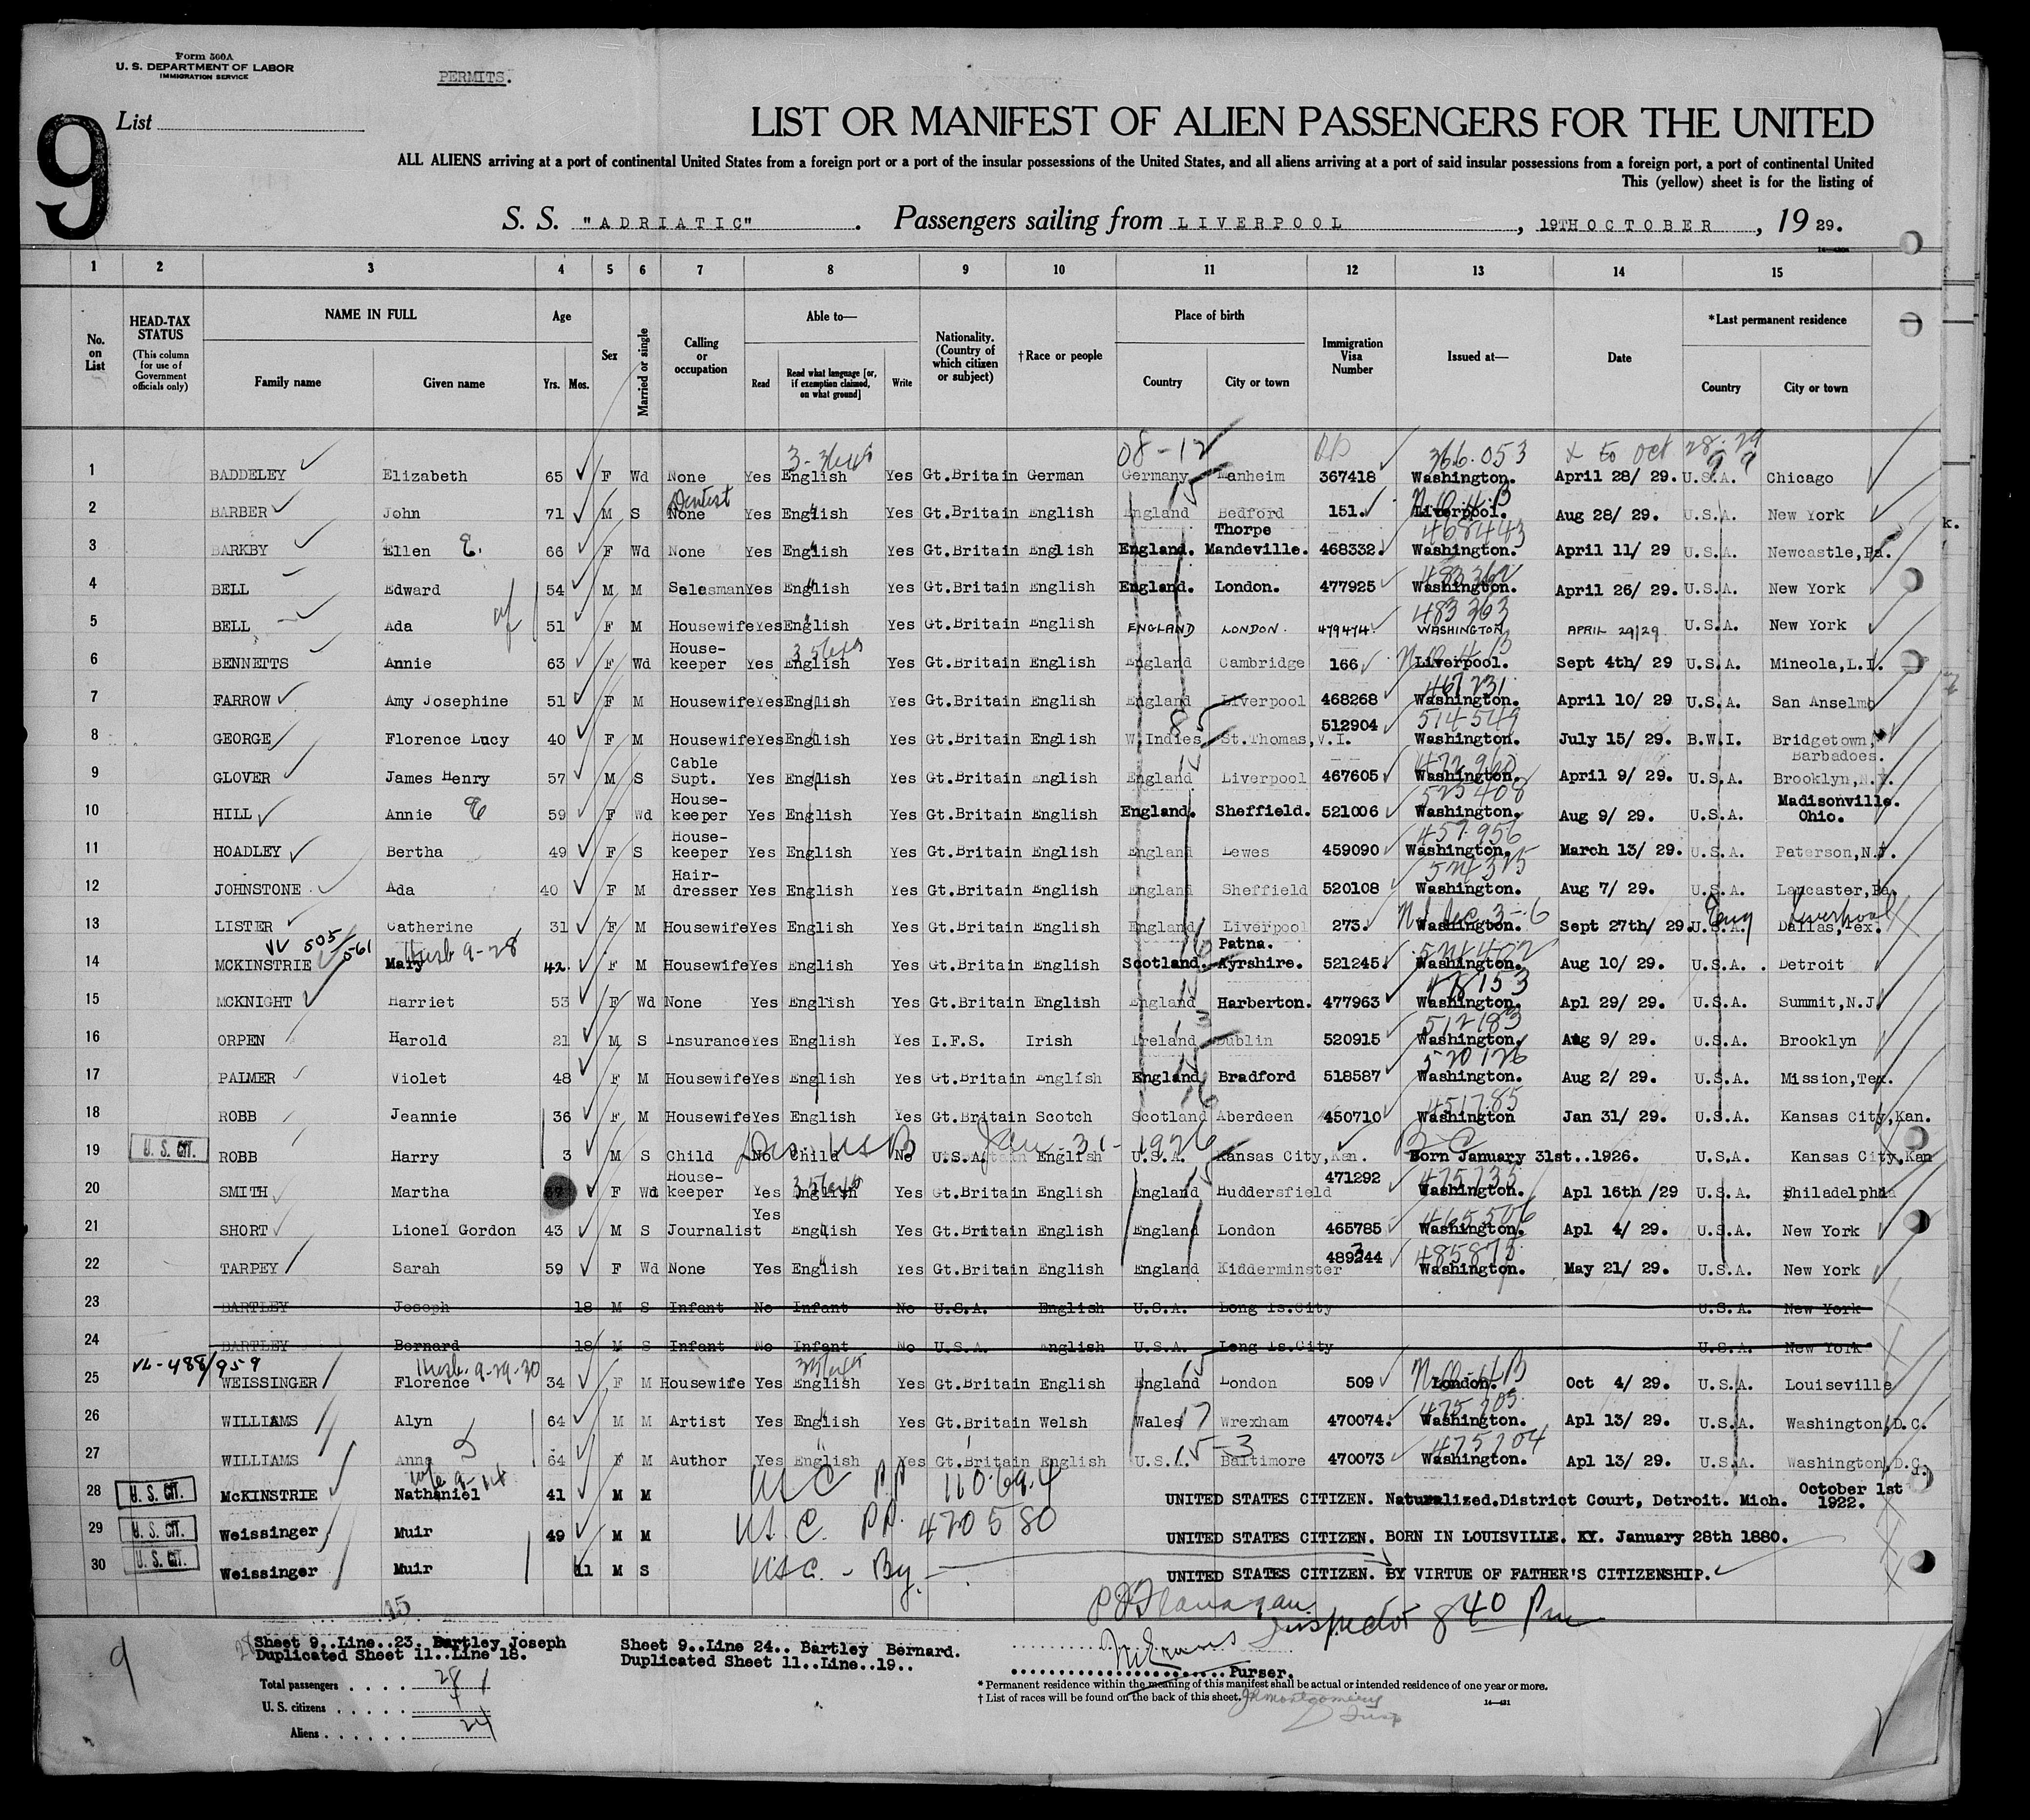 Form 500A
U. S. DEPARTMENT OF LABOR
IMMIGRATION SERVICE
PERMITS.
9
List
LIST OR MANIFEST OF ALIEN PASSENGERS FOR THE UNITED
ALL ALIENS arriving at a port of continental United States from a foreign port or a port of the insular possessions of the United States, and all aliens arriving at a port of said insular possessions from a foreign port, a port of continental United
This (yellow) sheet is for the listing of
S. S. "ADRIATIC". Passengers sailing from LIVERPOOL, 19TH OCTOBER, 1929.
1 2 3 4 5 6 7 8 9 10 11 12 13 14 15
No. on List
HEAD-TAX STATUS (This column for use of Government officials only)
NAME IN FULL Family name Given name
Age Yrs. Mos.
Sex
Married or single
Calling or occupation
Able to— Read Read what language [or, if exemption claimed, on what ground] Write
Nationality. (Country of which citizen or subject)
†Race or people
Place of birth Country City or town
Immigration Visa Number
Issued at—
Date
*Last permanent residence Country City or town
08-12 366.053 & to Oct 28-29
1 BADDELEY Elizabeth 65 F Wd None Yes English Yes Gt.Britain German Germany Manheim 367418 Washington. April 28/ 29. U.S.A. Chicago
Dentist
2 BARBER John 71 M S None Yes English Yes Gt.Britain English England Bedford 151. Liverpool. Aug 28/ 29. U.S.A. New York
468443
3 BARKBY Ellen E. 66 F Wd None Yes English Yes Gt.Britain English England. Thorpe Mandeville. 468332. Washington. April 11/ 29 U.S.A. Newcastle,Pa.
483362
4 BELL Edward 54 M M Salesman Yes English Yes Gt.Britain English England. London. 477925 Washington. April 26/ 29. U.S.A. New York
483363
5 BELL Ada 51 F M Housewife Yes English Yes Gt.Britain English ENGLAND LONDON. 479474. WASHINGTON APRIL 29/29. U.S.A. New York
6 BENNETTS Annie 63 F Wd House-keeper Yes English Yes Gt.Britain English England Cambridge 166 Liverpool. Sept 4th/ 29 U.S.A. Mineola,L.I.
467231
7 FARROW Amy Josephine 51 F M Housewife Yes English Yes Gt.Britain English England Liverpool 468268 Washington. April 10/ 29 U.S.A. San Anselmo
514549
8 GEORGE Florence Lucy 40 F M Housewife Yes English Yes Gt.Britain English W.Indies St.Thomas,V.I. 512904 Washington. July 15/ 29. B.W.I. Bridgetown, Barbadoes.
472960
9 GLOVER James Henry 57 M S Cable Supt. Yes English Yes Gt.Britain English England Liverpool 467605 Washington. April 9/ 29. U.S.A. Brooklyn,N.Y.
525408
10 HILL Annie E 59 F Wd House-keeper Yes English Yes Gt.Britain English England. Sheffield. 521006 Washington. Aug 9/ 29. U.S.A. Madisonville. Ohio.
457956
11 HOADLEY Bertha 49 F S House-keeper Yes English Yes Gt.Britain English England Lewes 459090 Washington. March 13/ 29. U.S.A. Paterson,N.J.
524315
12 JOHNSTONE. Ada 40 F M Hair-dresser Yes English Yes Gt.Britain English England Sheffield 520108 Washington. Aug 7/ 29. U.S.A. Lancaster,Pa.
Eng Liverpool
13 LISTER Catherine 31 F M Housewife Yes English Yes Gt.Britain English England Liverpool 273. Washington. Sept 27th/ 29. U.S.A. Dallas,Tex.
505/561 Husb 9-28
14 MCKINSTRIE Mary 42. F M Housewife Yes English Yes Gt.Britain English Scotland. Patna. Ayrshire. 521245. Washington. Aug 10/ 29. U.S.A. Detroit
15 MCKNIGHT Harriet 53 F Wd None Yes English Yes Gt.Britain English England Harberton. 477963 Washington. Apl 29/ 29. U.S.A. Summit,N.J.
512183
16 ORPEN Harold 21 M S Insurance Yes English Yes I.F.S. Irish Ireland Dublin 520915 Washington. Aug 9/ 29. U.S.A. Brooklyn
520126
17 PALMER Violet 48 F M Housewife Yes English Yes Gt.Britain English England Bradford 518587 Washington. Aug 2/ 29. U.S.A. Mission,Tex.
451785
18 ROBB Jeannie 36 F M Housewife Yes English Yes Gt.Britain Scotch Scotland Aberdeen 450710 Washington Jan 31/ 29. U.S.A. Kansas City,Kan.
Jan-31-1926 B C
19 U. S. CIT. ROBB Harry 3 M S Child No Child No U.S.A. English U.S.A. Kansas City,Kan. Born January 31st..1926. U.S.A. Kansas City,Kan
475735
20 SMITH Martha F Wd House-keeper Yes English Yes Gt.Britain English England Huddersfield 471292 Washington. Apl 16th /29 U.S.A. Philadelphia
465506
21 SHORT Lionel Gordon 43 M S Journalist Yes English Yes Gt.Britain English England London 465785 Washington. Apl 4/ 29. U.S.A. New York
485875
22 TARPEY Sarah 59 F Wd None Yes English Yes Gt.Britain English England Kidderminster Washington. May 21/ 29. U.S.A. New York
23 BARTLEY Joseph 18 M S Infant No Infant No U.S.A. English U.S.A. Long Is.City U.S.A. New York
24 BARTLEY Bernard 18 M S Infant No Infant No U.S.A. English U.S.A. Long Is.City U.S.A. New York
VL-488/959 Husb. 9-29-30
25 WEISSINGER Florence 34 F M Housewife Yes English Yes Gt.Britain English England London 509 London. Oct 4/ 29. U.S.A. Louiseville
475705
26 WILLIAMS Alyn 64 M M Artist Yes English Yes Gt.Britain Welsh Wales Wrexham 470074. Washington. Apl 13/ 29. U.S.A. Washington,D.C.
475704
27 WILLIAMS Anna 64 F M Author Yes English Yes Gt.Britain English U.S.A. Baltimore 470073 Washington. Apl 13/ 29. U.S.A. Washington,D.C.
wife 9-14
28 U. S. CIT. McKINSTRIE Nathaniel 41 M M USC PP 110694 UNITED STATES CITIZEN. Naturalized.District Court, Detroit. Mich. October 1st 1922.
29 U. S. CIT. Weissinger Muir 49 M M U.S.C. PP. 420580 UNITED STATES CITIZEN. BORN IN LOUISVILLE. KY. January 28th 1880.
30 U. S. CIT. Weissinger Muir 11 M S USC. - By. UNITED STATES CITIZEN. BY VIRTUE OF FATHER'S CITIZENSHIP.
15
PJ Flanagan Inspector 8 40 Pm
9
Sheet 9..Line..23. Bartley Joseph
Duplicated Sheet 11..Line 18.
Sheet 9..Line 24.. Bartley Bernard.
Duplicated Sheet 11..Line..19..
Purser.
Total passengers 28
U. S. citizens 4
Aliens 24
* Permanent residence within the meaning of this manifest shall be actual or intended residence of one year or more.
† List of races will be found on the back of this sheet.
JRMontgomery
Insp